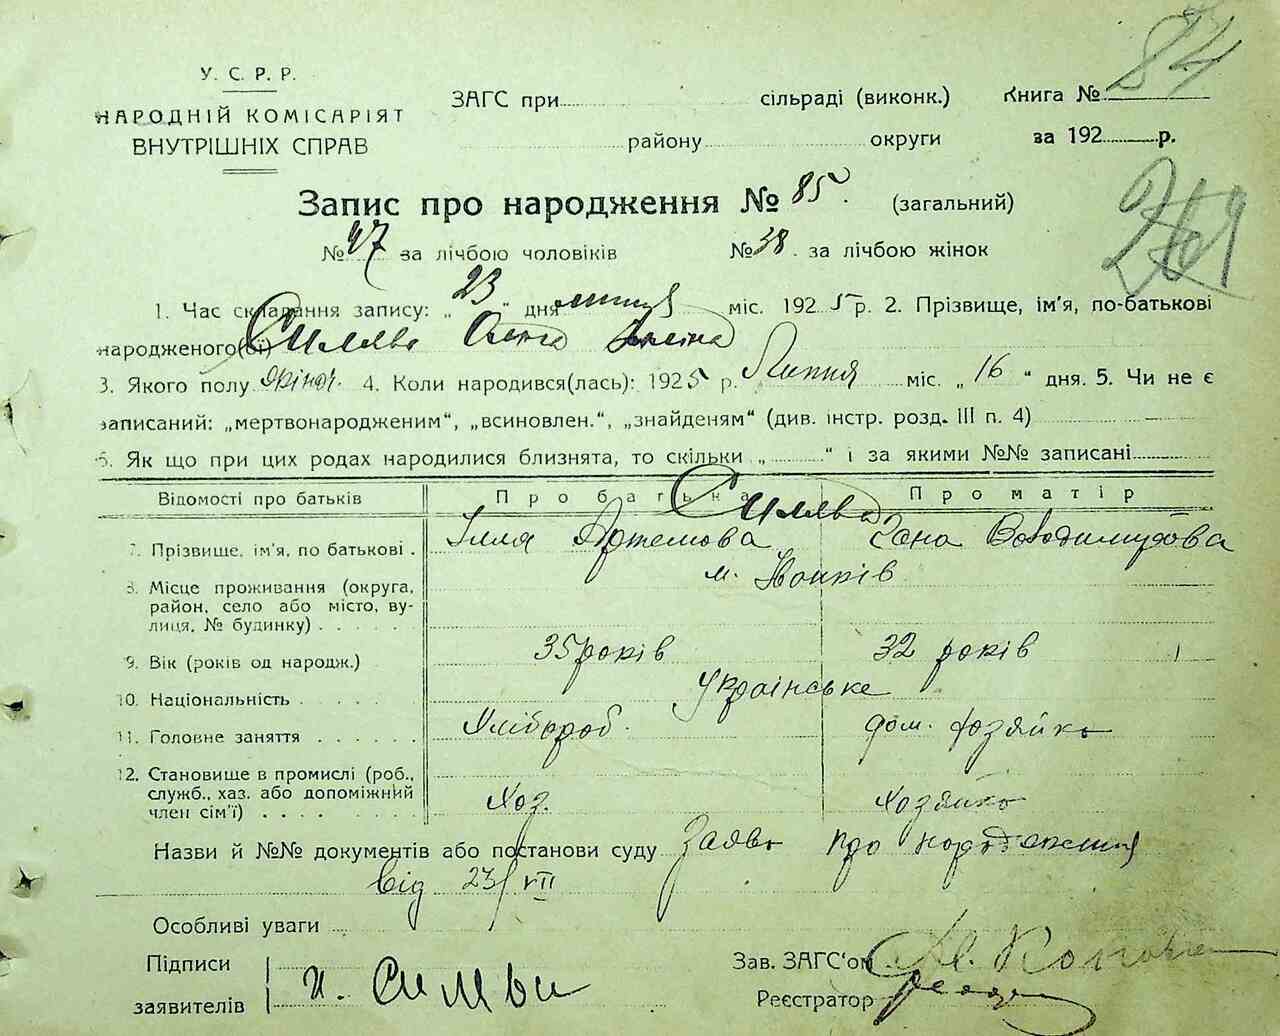 84
У. С. Р. Р.
НАРОДНІЙ КОМІСАРІЯТ
ВНУТРІШНІХ СПРАВ
ЗАГС при сільраді (виконк.) Книга №
району округи за 192 р.
Запис про народження № 85. (загальний)
№ 47 за лічбою чоловіків № 38. за лічбою жінок
1. Час складання запису: „ 23 “ дня липня міс. 1925 р. 2. Прізвище, ім'я, по-батькові
народженого(ої) Силява Ольга
3. Якого полу жіноч. 4. Коли народився(лась): 1925 р. Липня міс. „ 16 “ дня. 5. Чи не є
записаний: „мертвонародженим“, „всиновлен.“, „знайденям“ (див. інстр. розд. III п. 4)
6. Як що при цих родах народилися близнята, то скільки „ “ і за якими №№ записані
Відомості про батьків Про батька Про матір
Силява
7. Прізвище, ім'я, по батькові . Ілля Артемова Володимирова
8. Місце проживання (округа,
район, село або місто, ву-
лиця, № будинку) . . . . . .
м.
9. Вік (років од народж.) 35 років 32 років
10. Національність . . . . . . Українське
11. Головне заняття . . . . . . Хлібороб. дом. хозяйка
12. Становище в промислі (роб.,
служб., хаз. або допоміжний
член сім'ї) . . . . . . . . Хоз. Хозяйка
Назви й №№ документів або постанови суду Заява про народження
від 23/VII
Особливі уваги
Підписи
заявителів
И. Силява
Зав. ЗАГС'ом
Реєстратор